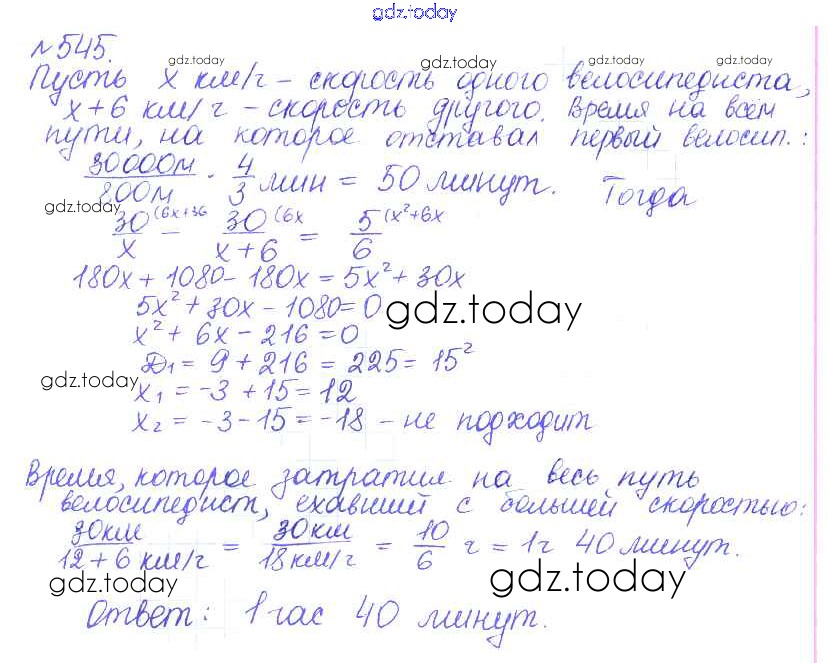 gdz.today
№545.
gdz.today gdz.today gdz.today gdz.today
Пусть x км/г - скорость одного велосипедиста,
x+6 км/г - скорость другого. Время на всем
пути, на которое отставал первый велосип.:
30000м/800м · 4/3 мин = 50 минут. Тогда
gdz.today
30/x (6x+36 - 30/x+6 (6x = 5/6 (x²+6x
180x + 1080 - 180x = 5x² + 30x
5x² + 30x - 1080 = 0
gdz.today
x² + 6x - 216 = 0
Д₁ = 9 + 216 = 225 = 15²
gdz.today
x₁ = -3 + 15 = 12
x₂ = -3 - 15 = -18 - не подходит
Время, которое затратил на весь путь
велосипедист, ехавший с большей скоростью:
30км/12+6 км/г = 30км/18км/г = 10/6 г = 1г 40 минут.
gdz.today gdz.today
Ответ: 1 час 40 минут.